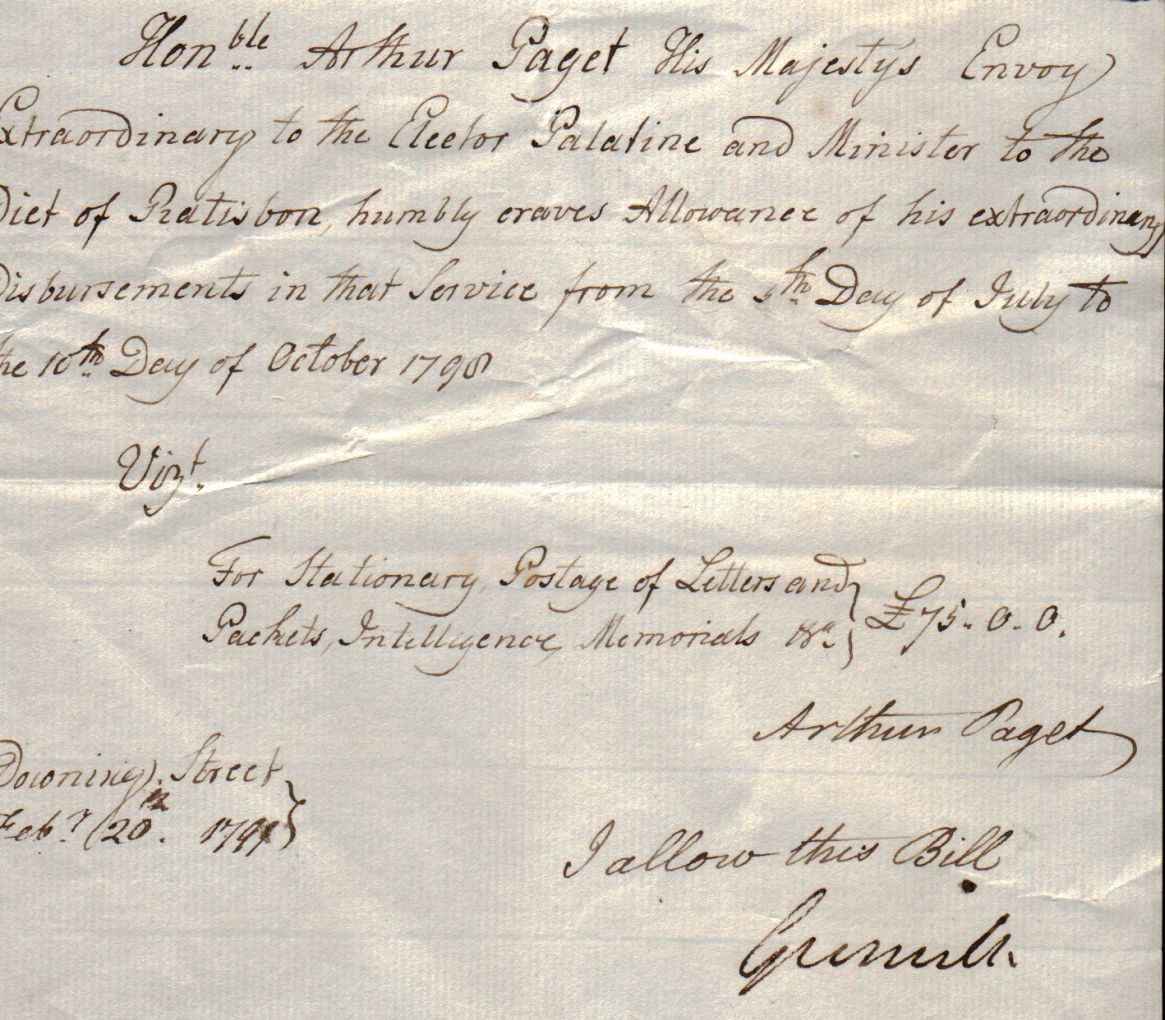 Hon.ble Arthur Paget His Majestys Envoy
Extraordinary to the Elector Palatine and Minister to the
Diet of Ratisbon, humbly craves Allowance of his extraordinary
Disbursements in that Service from the 5th Day of July to
the 10th Day of October 1798
Vizt.
For Stationary, Postage of Letters and
Packets, Intelligence, Memorials &c. £75. 0. 0.
Arthur Paget
Downing Street
Feby. 20th. 1799
I allow this Bill
Grenville